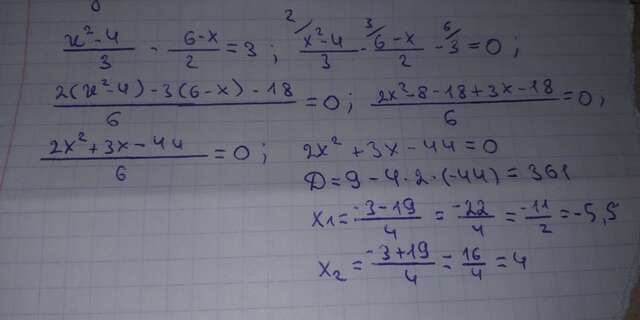 (x²-4)/3 - (6-x)/2 = 3 ; ²/(x²-4)/3 - ³/(6-x)/2 - ⁶/3 = 0 ;
(2(x²-4)-3(6-x)-18)/6 = 0 ; (2x²-8-18+3x-18)/6 = 0 ;
(2x²+3x-44)/6 = 0 ; 2x²+3x-44=0
D=9-4·2·(-44)=361
x₁= (-3-19)/4 = (-22)/4 = (-11)/2 = -5,5
x₂= (-3+19)/4 = 16/4 = 4